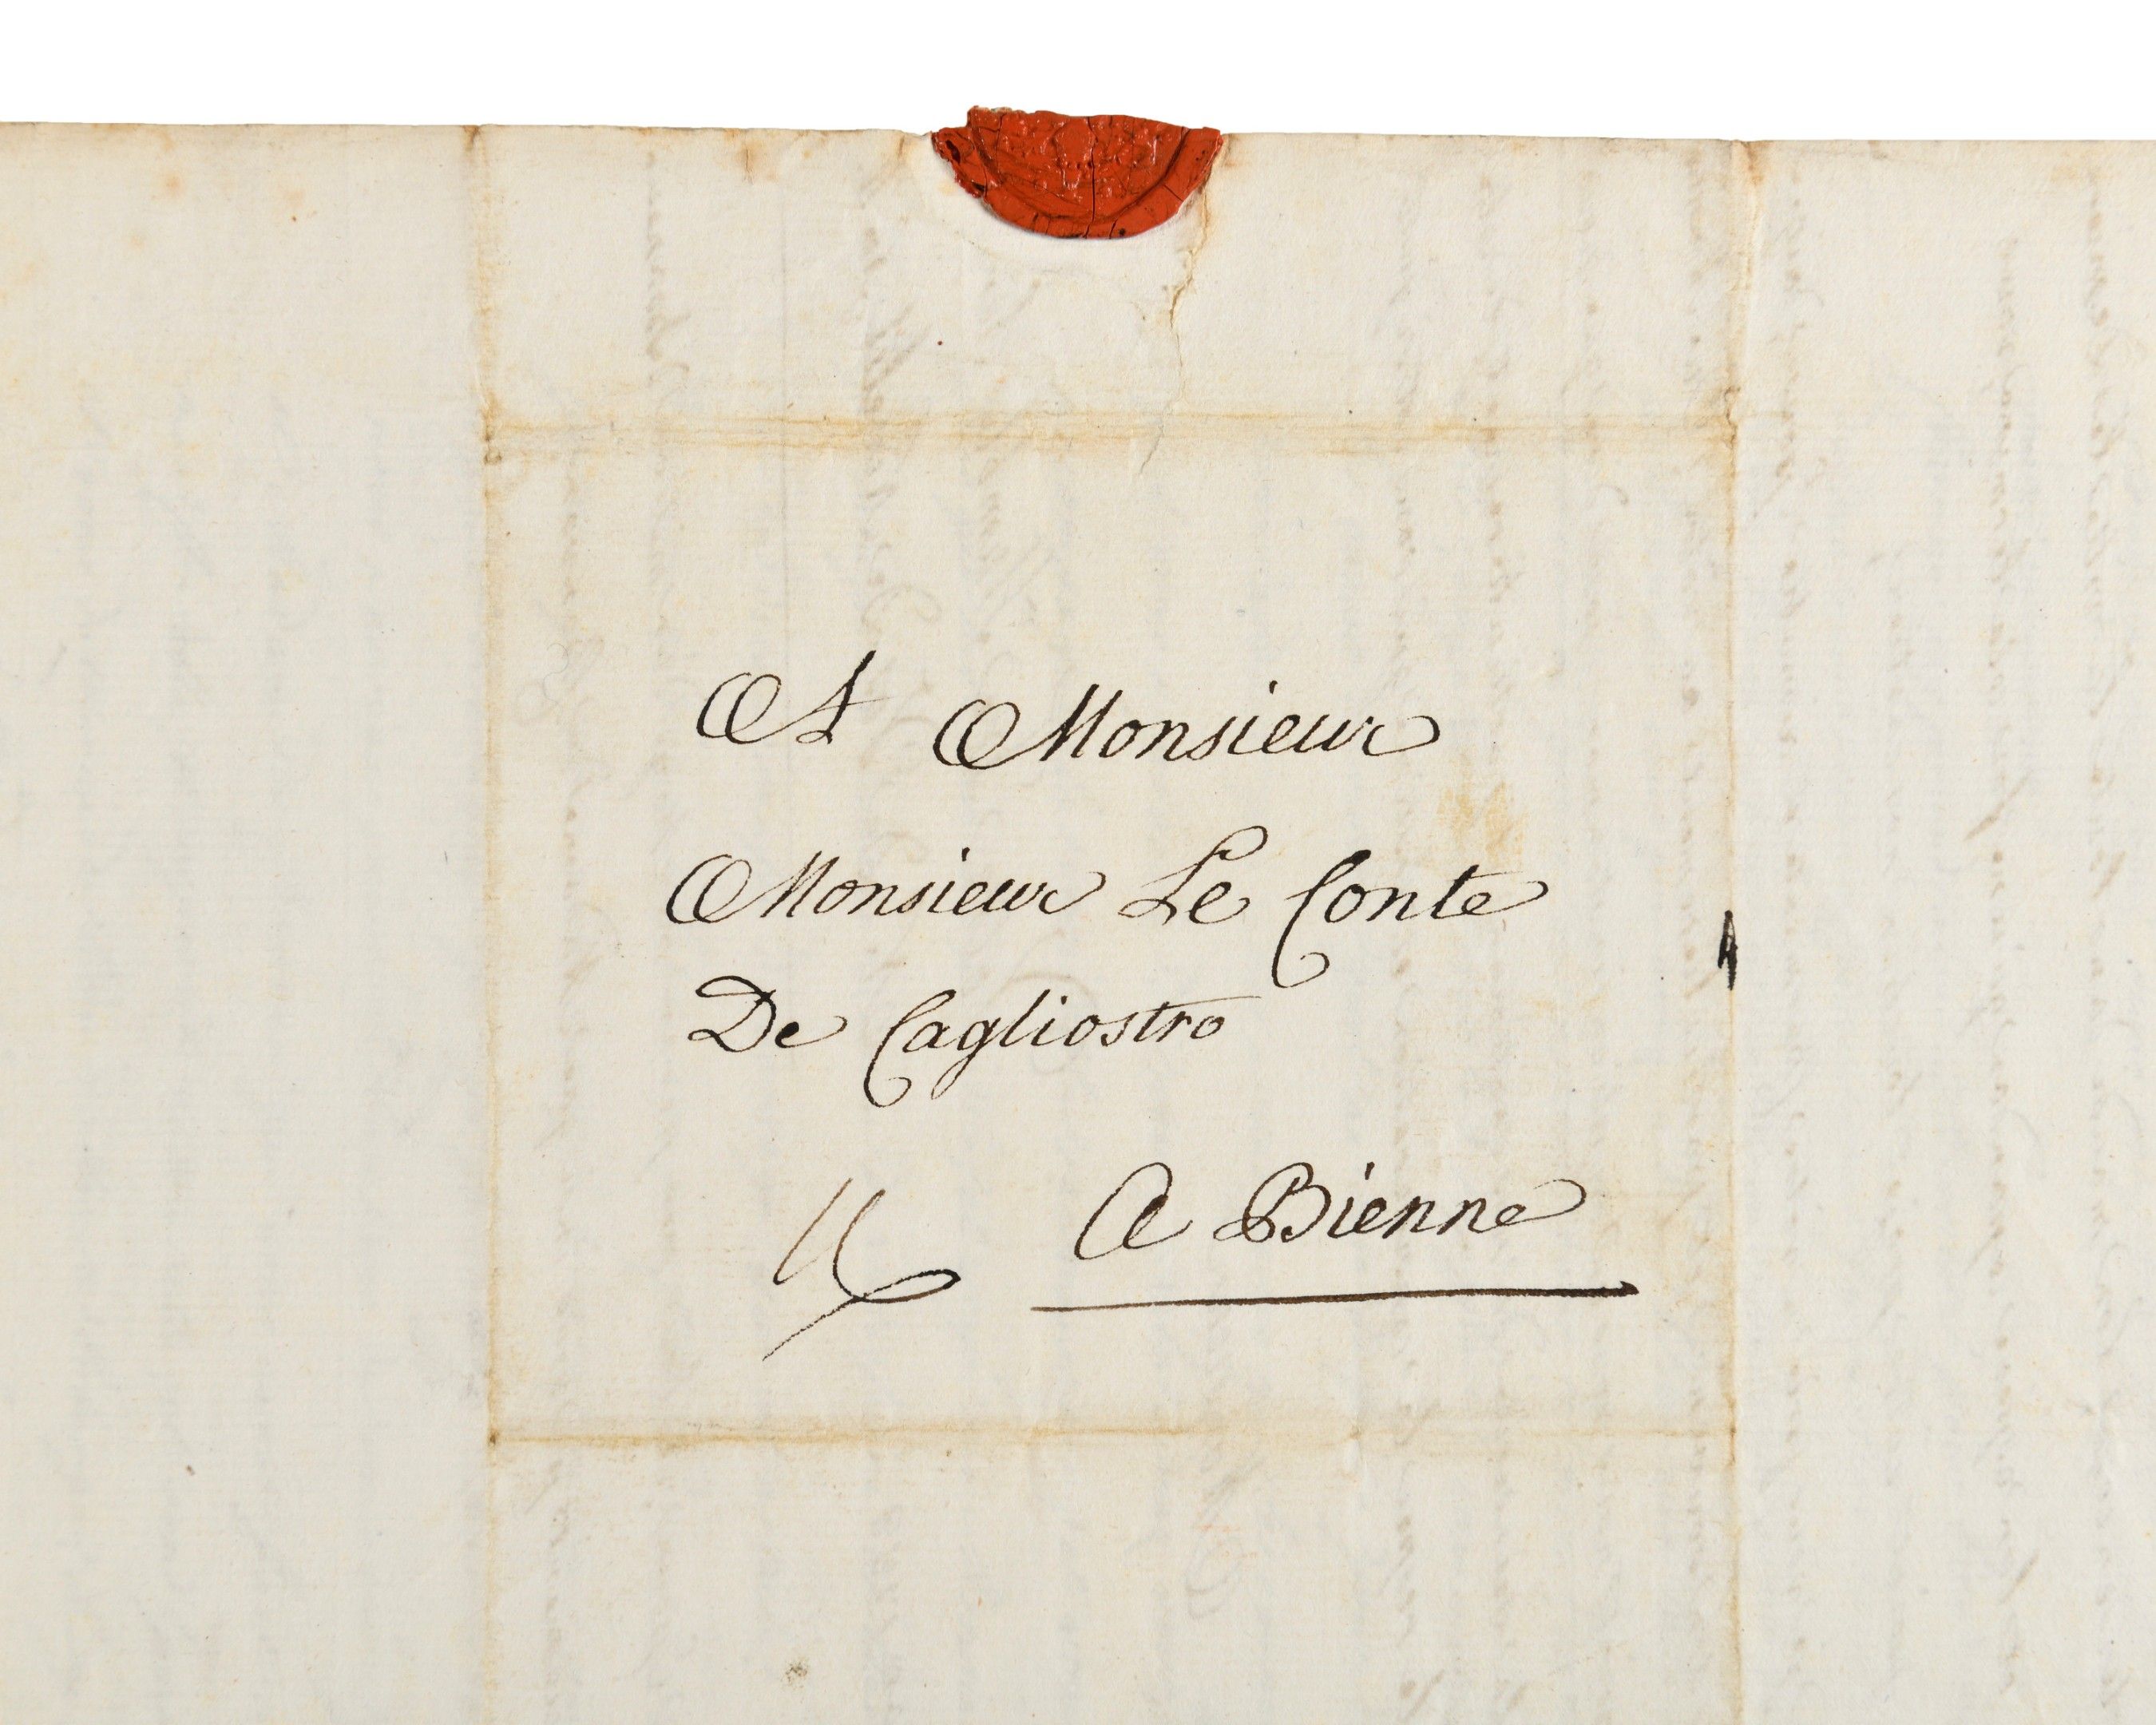 A Monsieur
Monsieur Le Conte
De Cagliostro
A Bienne